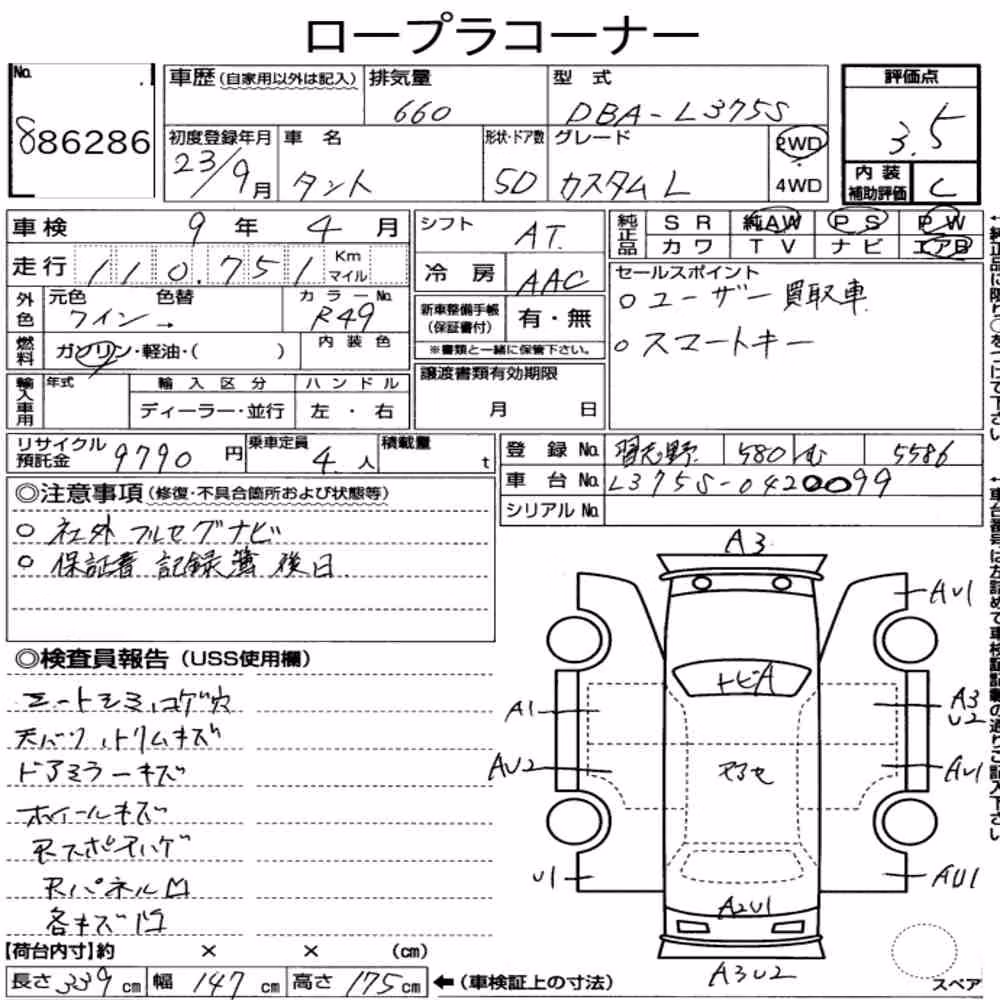 ロープラコーナー
No. 886286
車歴 (自家用以外は記入) 排気量 660 型式 DBA-L375S 評価点 3.5
初度登録年月 23/9月 車名 タント 形状・ドア数 5D グレード カスタム L 2WD・4WD 内装補助評価 C
車検 9年 4月 シフト AT. 純正品 SR 純AW PS PW
走行 110.751 Km マイル 冷房 AAC カワ TV ナビ エアB
外色 元色 ワイン 色替 → カラーNo. R49
新車整備手帳(保証書付) 有・無
※書類と一緒に保管下さい。
セールスポイント
○ユーザー買取車
○スマートキー
燃料 ガソリン・軽油・( ) 内装色
輸入車用 年式 輸入区分 ハンドル
ディーラー・並行 左・右
譲渡書類有効期限
月 日
リサイクル預託金 9790円 乗車定員 4.人 積載量 t
登録No. 習志野 580 む 5586
車台No. L375S-0420099
シリアルNo.
◎注意事項(修復・不具合箇所および状態等)
○社外 フルセグナビ
○保証書 記録簿 後日.
◎検査員報告(USS使用欄)
シートシミ、コゲ穴
天バリ、トリムキズ
ドアミラーキズ
ホイールキズ
Rパネル凹
各キズ凹
A3
AU1
トビA
A1
A3
U2
AU2
AU1
U1
AU1
A2U1
A3U2
スペア
【荷台内寸】約 × × (cm)
長さ 339cm 幅 147cm 高さ 175cm ←(車検証上の寸法)
↑純正品に限り○をつけて下さい
↑車台番号は左詰めで車検証記載の通りご記入下さい